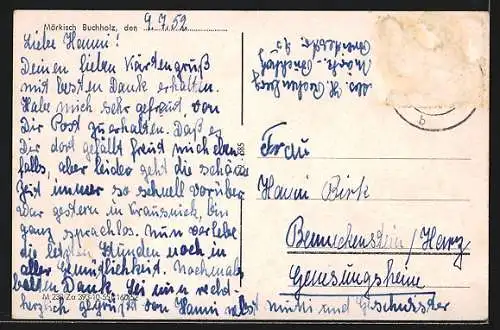 Märkisch Buchholz, den 9.7.59
Liebe Hanni!
Deinen lieben Kartengruß
mit besten Dank erhalten.
Habe mich sehr gefreut, von
Dir Post zu erhalten. Daß es
Dir dort gefällt freut mich eben-
falls, aber leider geht die schöne
Zeit immer so schnell vorüber
war gestern in Krausnick, bin
ganz sprachlos. Nun verlebe
die letzten Stunden noch in
aller Gemütlichkeit. Nochmals
besten Dank. Sei nun recht
herzlich gegrüßt von Hanni nebst Mutti und Geschwister
Märk. Buchholz
Frau
Hanni Birk
Benneckenstein/Harz
Genesungsheim